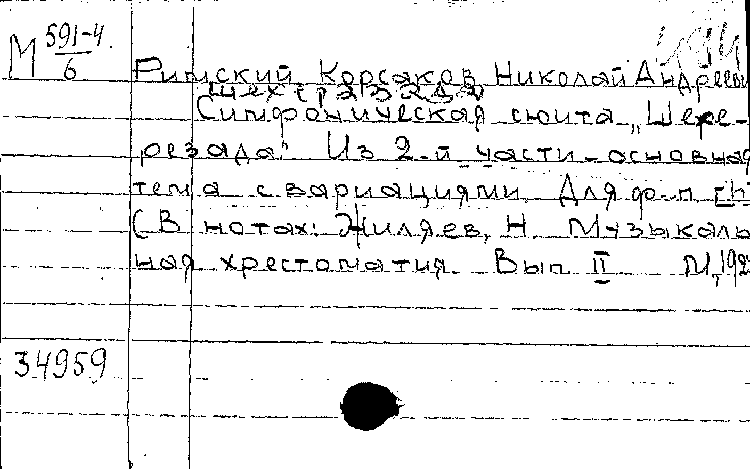 М 591-4
6
Римский-Корсаков, Николай Андреевич
Шехеразада
Симфоническая сюита „Шехе-
резада". Из 2-й части - основная
тема с вариациями. Для ф-п [h
(В нотах: Жиляев, Н. Музыкаль
ная хрестоматия. Вып II М, 192
34959